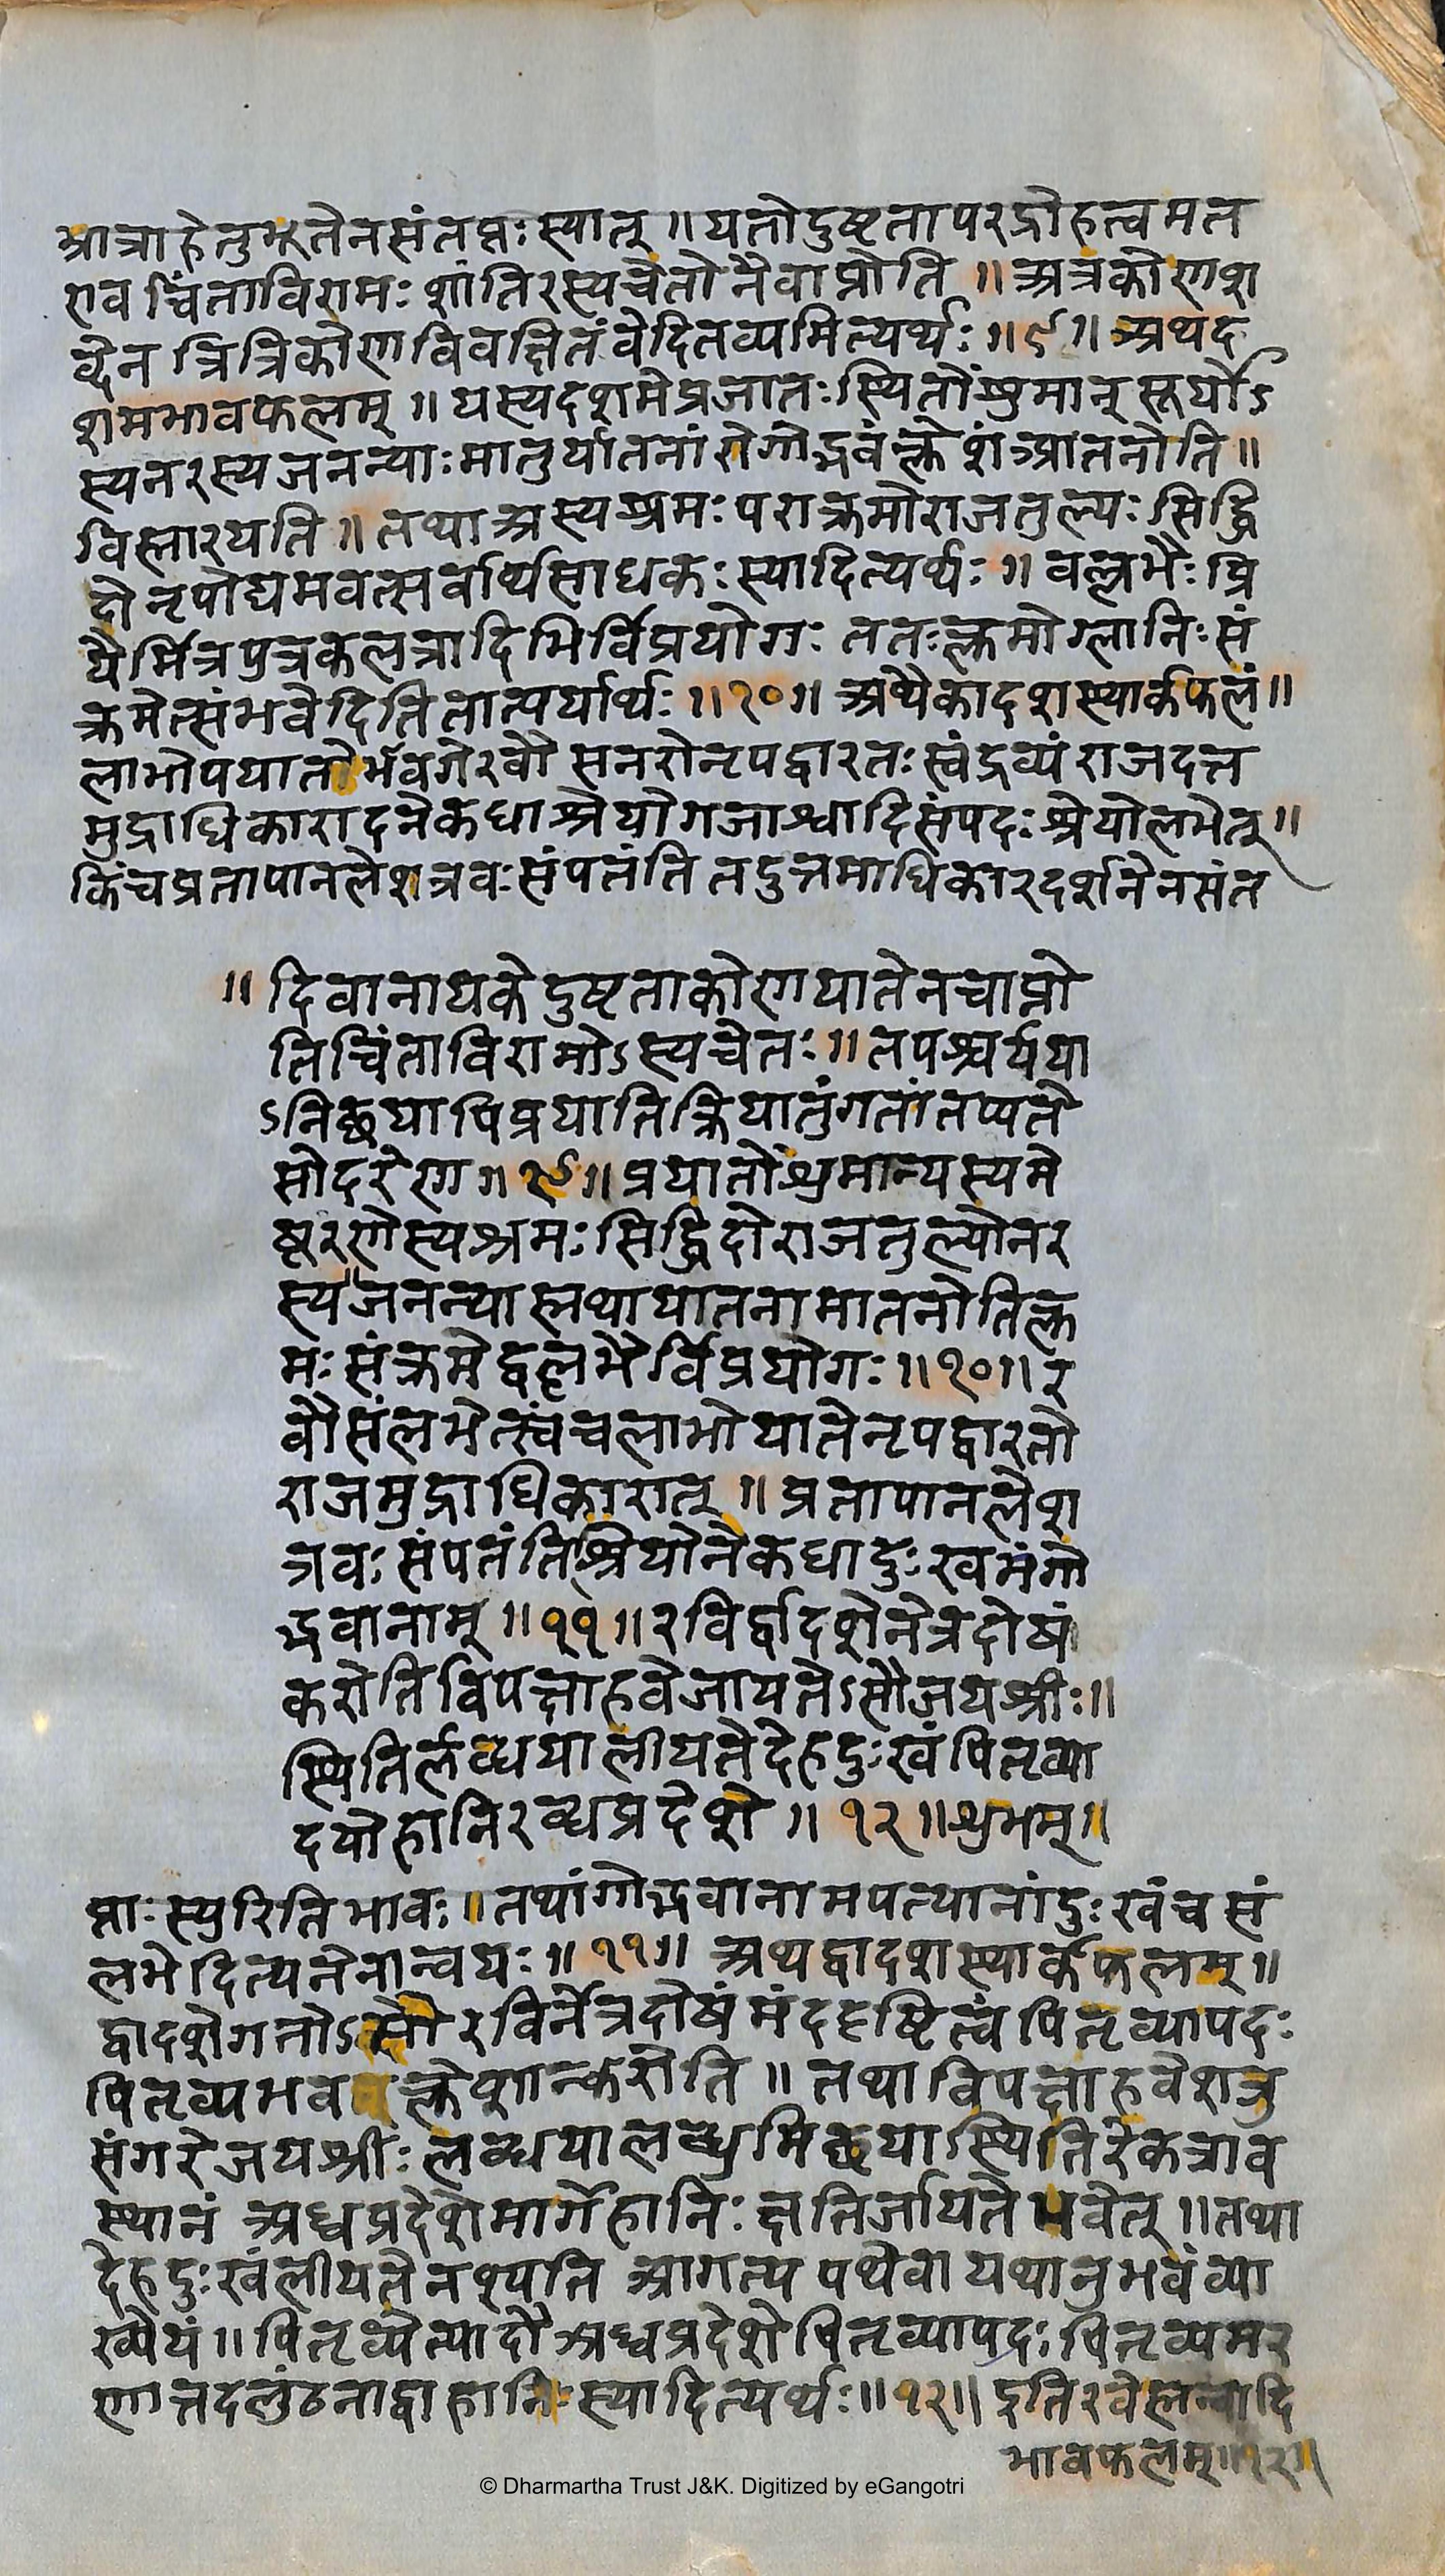 भ्रात्राहेतुभूतेनसंतप्तःस्यात् ॥ यतोदुष्टतापरद्रोहत्वमत
एव चिंताविरामः शांतिरस्यचेतोनैवाप्नोति ॥ अत्रकोणश
ब्देन त्रित्रिकोणविवक्षितंवेदितव्यमित्यर्थः ॥९॥ अथद
शमभावफलम् ॥ यस्यदशमेप्रजातःस्थितोंशुमान् सूर्योऽ
स्यनरस्यजनन्याःमातुर्यातनांरोगोद्भवंक्लेशंऽआतनोति ॥
विस्तारयति ॥ तथा अस्यश्रमःपराक्रमोराजतुल्यःसिद्धि
दो नृपोद्यमवत्सर्वार्थसाधकःस्यादित्यर्थः ॥ वल्लभैः प्रि
यैर्मित्रपुत्रकलत्रादिभिर्विप्रयोगः ततःक्लमोग्लानिःसं
क्रमेत्संभवेदितितात्पर्यार्थः ॥१०॥ अथैकादशस्यार्कफलं॥
लाभोपयातोर्भवगेरवौ सनरोनृपद्वारतःस्वंद्रव्यं राजदत्त
मुद्राधिकारादनेकधाश्रियोगजाश्वादिसंपदःश्रेयोलभेत् ॥
किंचप्रतापानलेशत्रवःसंपतंति तदुत्तमाधिकारदर्शनेनसंत
॥ दिवानाथकेदुष्टताकोणयातेनचाप्नो
तिचिंताविरामोऽस्यचेतः ॥ तपश्चर्यया
ऽनिछयापिप्रयातिक्रियातुंगतांतप्यते
सोदरेण ॥९॥ प्रयातोंशुमान्यस्यमे
षूरणेस्यश्रमःसिद्धिदोराजतुल्योनर
स्य॥जनन्यास्तथायातनामातनोतिक्ल
मःसंक्रमेद्वल्लभैर्विप्रयोगः ॥१०॥ र
वौसंलभेत्स्वंचलाभोयातेनृपद्वारतो
राजमुद्राधिकारात् ॥ प्रतापानलेश
त्रवःसंपतंतिश्रियोनेकधादुःखमंगो
द्भवानाम् ॥११॥ रविर्द्वादशेनेत्रदोषं
करोतिविपक्षाहवेजायतेऽसौजयश्रीः॥
स्थितिर्लब्धयालीयतेदेहदुःखंपितृव्या
दयोहानिरध्वप्रदेशे ॥१२॥ शुभम्॥
प्ताःस्युरितिभावः ॥ तथांगोद्भवानामपत्यानांदुःखंचसं
लभेदित्यनेनान्वयः ॥११॥ अथद्वादशस्यार्कफलम् ॥
द्वादशेगतोऽसौरविर्नेत्रदोषंमंददृष्टित्वंपितृव्यापदः
पितृव्यभव क्लेशान्करोति ॥ तथाविपक्षाहवेशत्रु
संगरेजयश्रीः लब्धयालब्धुमिछयास्थितिरेकत्राव
स्थानं अध्वप्रदेशेमार्गेहानिःक्षतिर्जायतेभवेत् ॥ तथा
देहदुःखंलीयतेनश्यति आगत्य पथेवा यथानुभवंव्या
ख्येयं ॥ पितृव्येत्यादौ अध्वप्रदेशेपितृव्यापदःपितृव्यमर
णात्तदलुंठनाद्वाहानिःस्यादित्यर्थः ॥१२॥ इतिरवेस्तन्वादि
भावफलम् ॥१२॥
© Dharmartha Trust J&K. Digitized by eGangotri